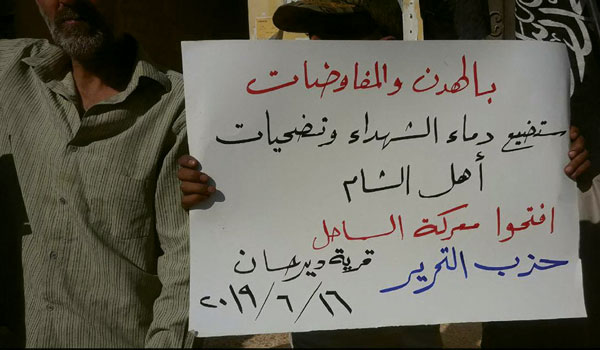 بالهدن والمفاوضات
ستضيع دماء الشهداء وتضحيات
أهل الشام
افتحوا معركة الساحل
حزب التحرير
قرية ديرحسان
٢٠١٩/٦/١٦